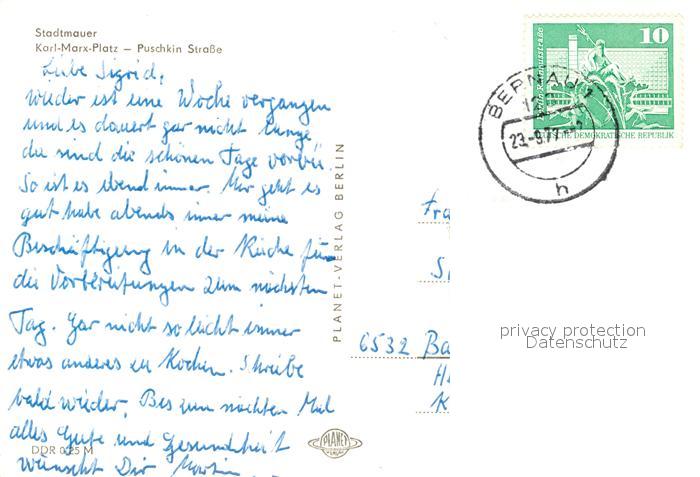 Stadtmauer
Karl-Marx-Platz – Puschkin Straße
Liebe Sigrid,
wieder ist eine Woche vergangen
und es dauert gar nicht lange
da sind die schönen Tage vorbei.
So ist es ebend immer. Mir geht es
gut habe abends immer meine
Beschäftigung in der Küche für
die Vorbereitungen zum nächsten
Tag. Gar nicht so leicht immer
etwas anderes zu Kochen. Schreibe
bald wieder. Bis zum nächten Mal
alles Gute und Gesundheit
wünscht Dir
DDR 0,25 M
PLANET-VERLAG BERLIN
PLANET
10
BERNAU 1
23.-8.77
h
DEMOKRATISCHE REPUBLIK
Fra
6532 Ba
H
K
privacy protection
Datenschutz